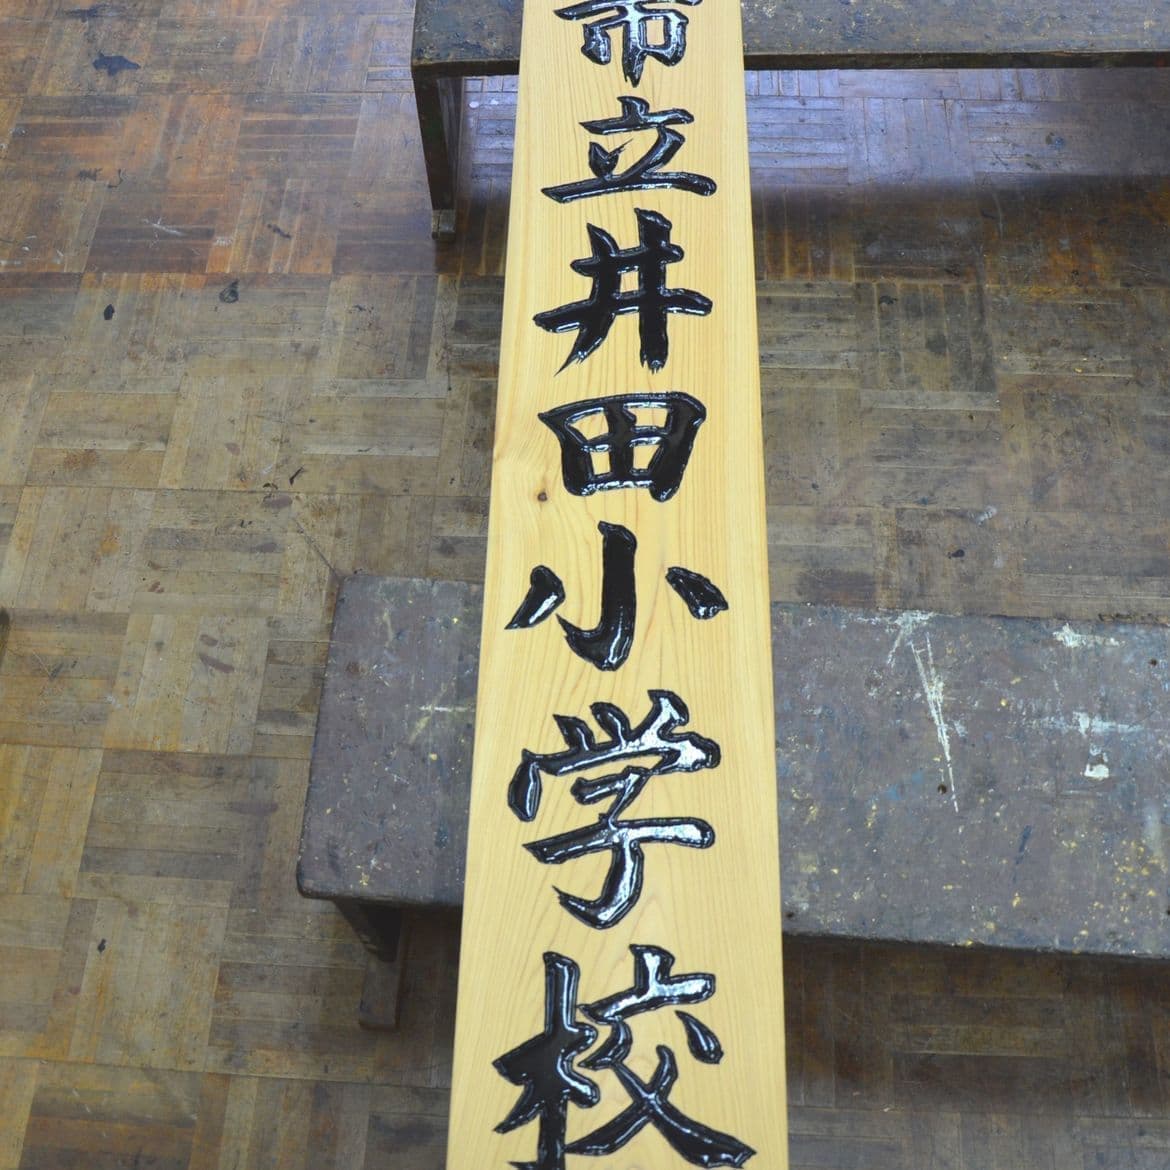 市立井田小学校